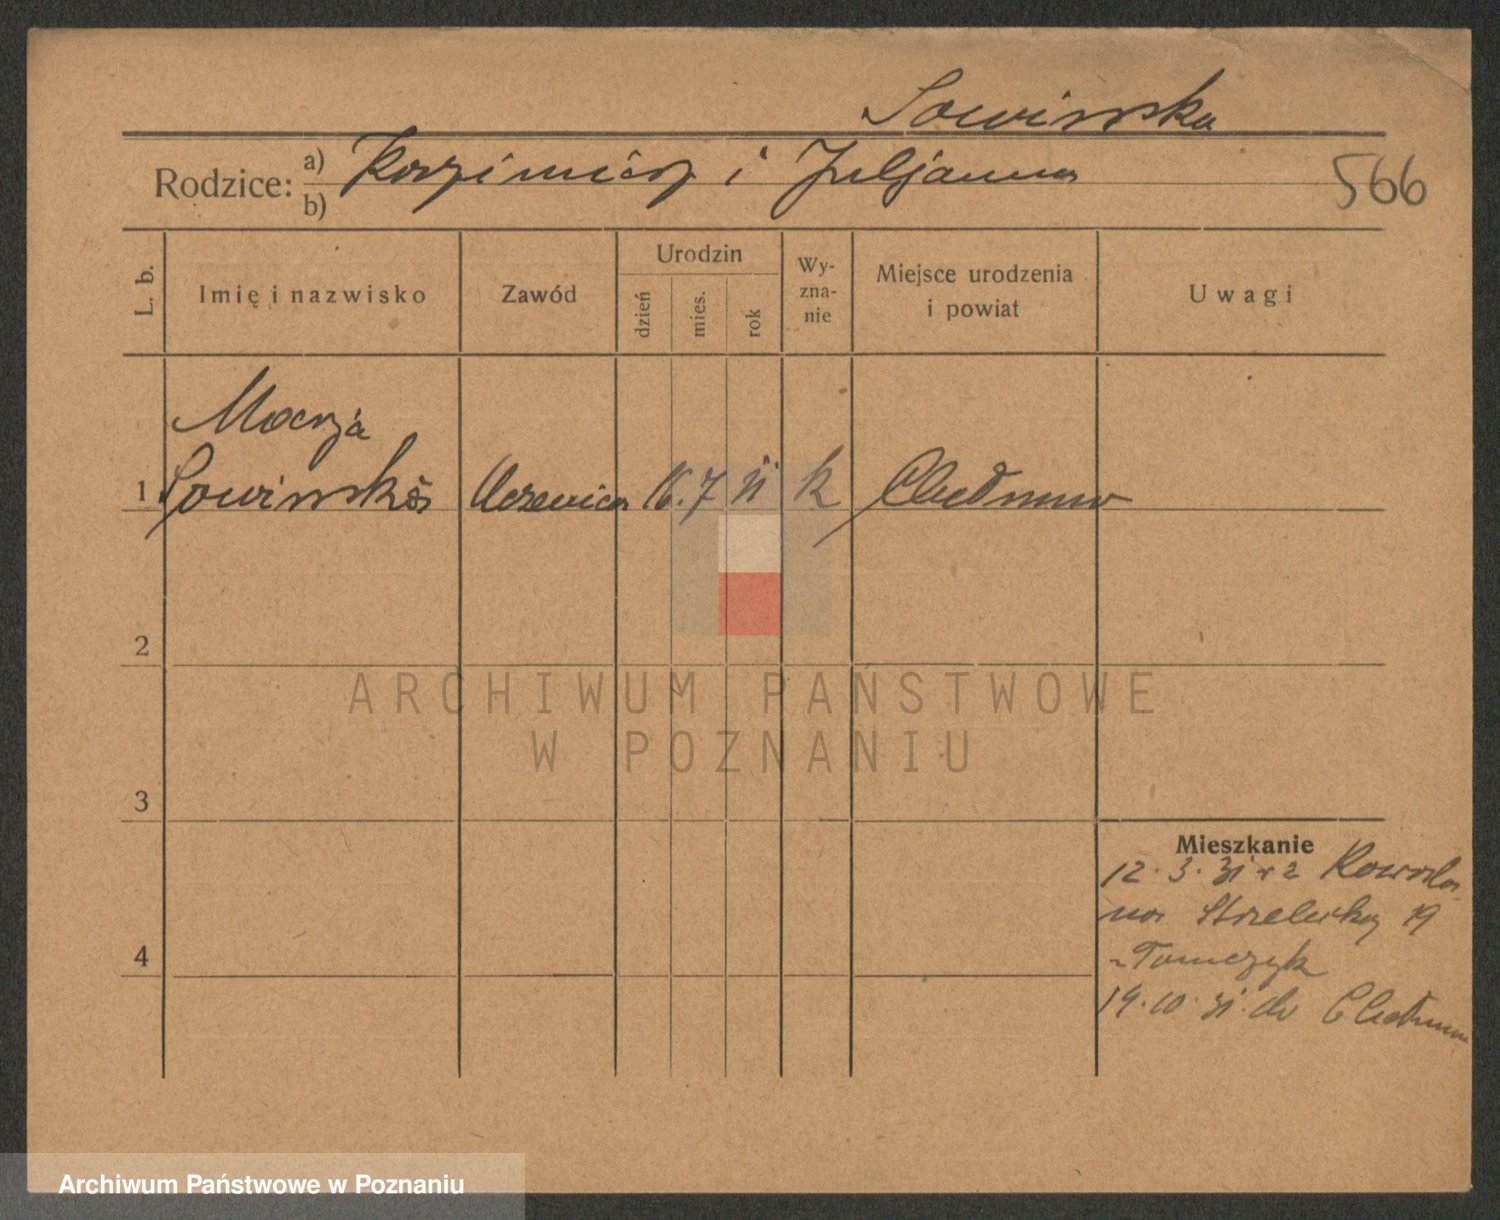 Sowinska
Rodzice: a) Kazimierz i Juljanna
b)
566
L. b.
Imię i nazwisko
Zawód
Urodzin
dzień
mies.
rok
Wy-
zna-
nie
Miejsce urodzenia
i powiat
Uwagi
Marja
1 Sowinska Uczenica 16. 7 11 k Chełmno
2
3
4
Mieszkanie
12. 3. 31 z
na Strzelecką 19
Tomczyk
19. 10. 31. do Chełmna
ARCHIWUM PAŃSTWOWE
W POZNANIU
Archiwum Państwowe w Poznaniu